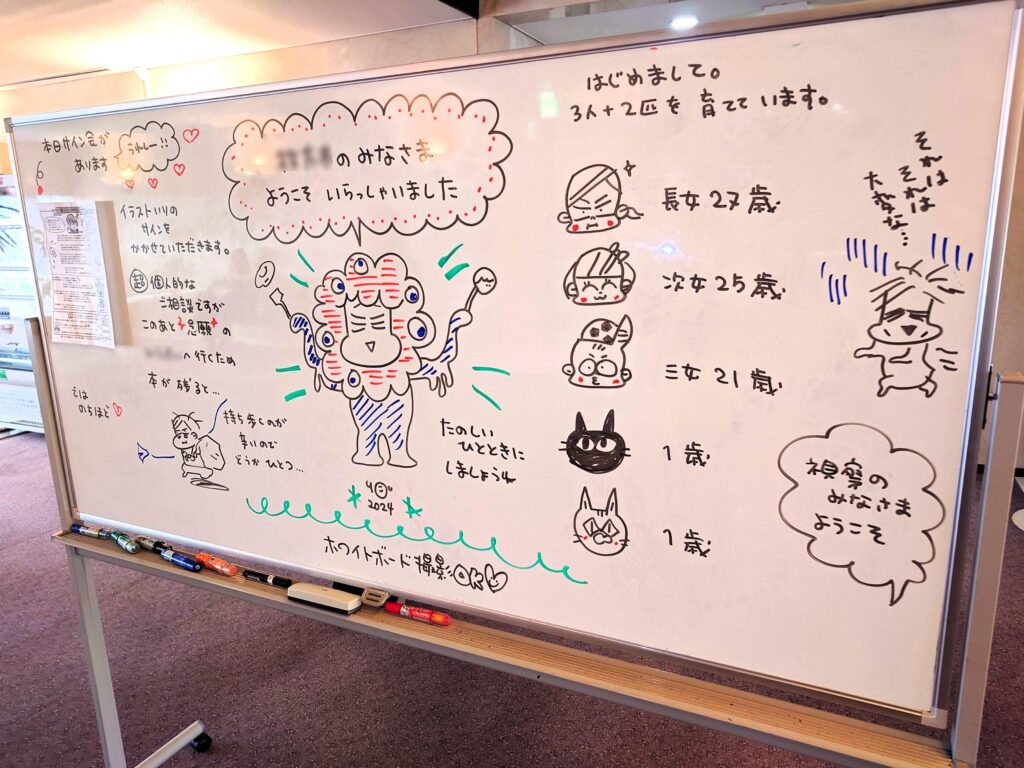 本日サイン会が
あります
うれしー!!
イラスト入りの
サインを
かかせていただきます。
超個人的な
ご相談ですが
このあと悲願の
へ行くため
本が残ると…
持ち歩くのが
辛いので
どうかひとつ…
では
のちほど
のみなさま
ようこそいらっしゃいました
たのしい
ひとときに
しましょうね
2024
ホワイトボード撮影OK
はじめまして。
3人+2匹を育てています。
長女27歳
次女25歳
三女21歳
1歳
1歳
それは
それは
大変な…
視察の
みなさま
ようこそ